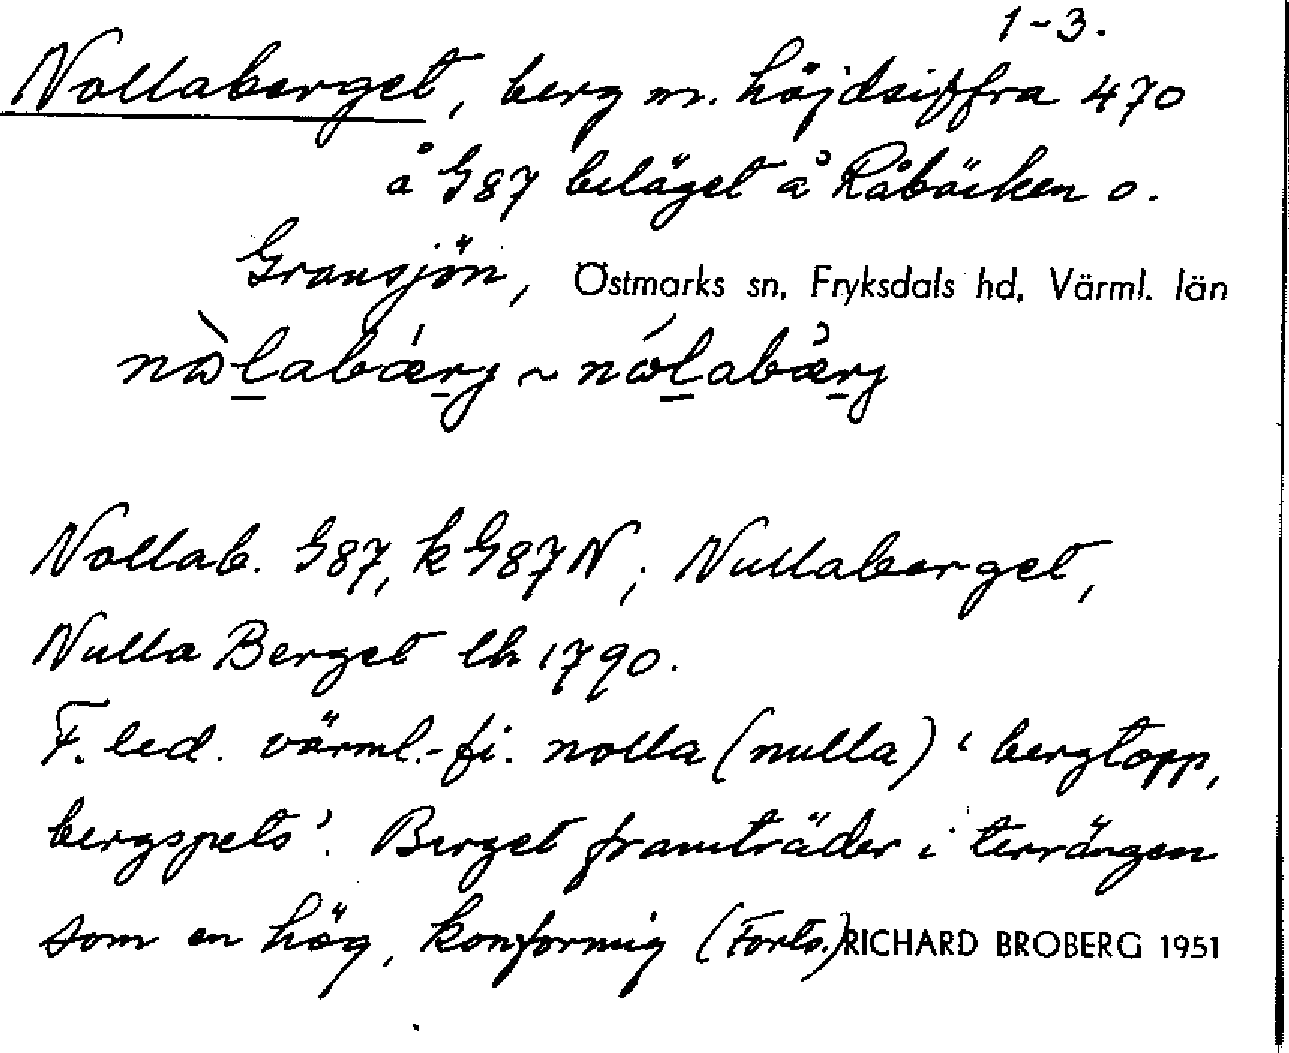 1-3.
Nollaberget, berg m. höjdsiffra 470
å G87 beläget å Råbäcken o.
Gransjön, Östmarks sn, Fryksdals hd, Värml. län
nɷ̀labǽrg ~ nɷ́labæ̉rg
Nollab. G87, k G87N; Nullaberget,
Nulla Berget lh 1790.
F. led. värml.-fi. nolla (nulla) 'bergtopp,
bergspets'. Berget framträder i terrängen
som en hög, konformig (Forts.) RICHARD BROBERG 1951